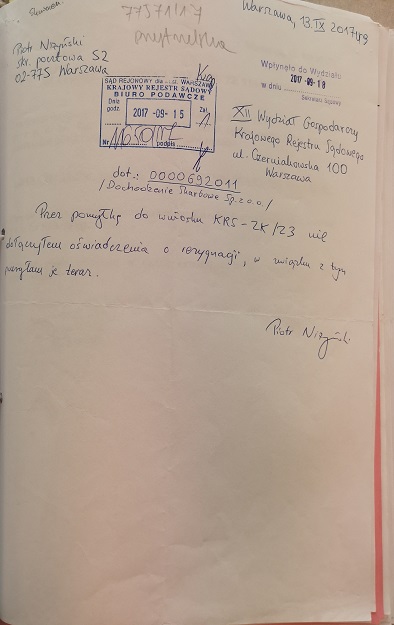 Skarbowski.
77371/17
Warszawa, 13.IX 2017r
Piotr Niżyński
skr. pocztowa 52
02-775 Warszawa
SĄD REJONOWY dla WARSZAWY
KRAJOWY REJESTR SĄDOWY
BIURO PODAWCZE
Dnia
godz.
2017 -09- 15
Zał.
1
Nr podpis
Wpłynęło do Wydziału
2017 -09- 18
w dniu
Sekretarz Sądowy
XII Wydział Gospodarczy
Krajowego Rejestru Sądowego
ul. Czerniakowska 100
Warszawa
dot.: 0000692011
/Dochodzenie Skarbowe Sp. z o.o./
Przez pomyłkę do wniosku KRS-ZK/Z3 nie
dołączyłem oświadczenia o rezygnacji, w związku z tym
przesyłam je teraz.
Piotr Niżyński